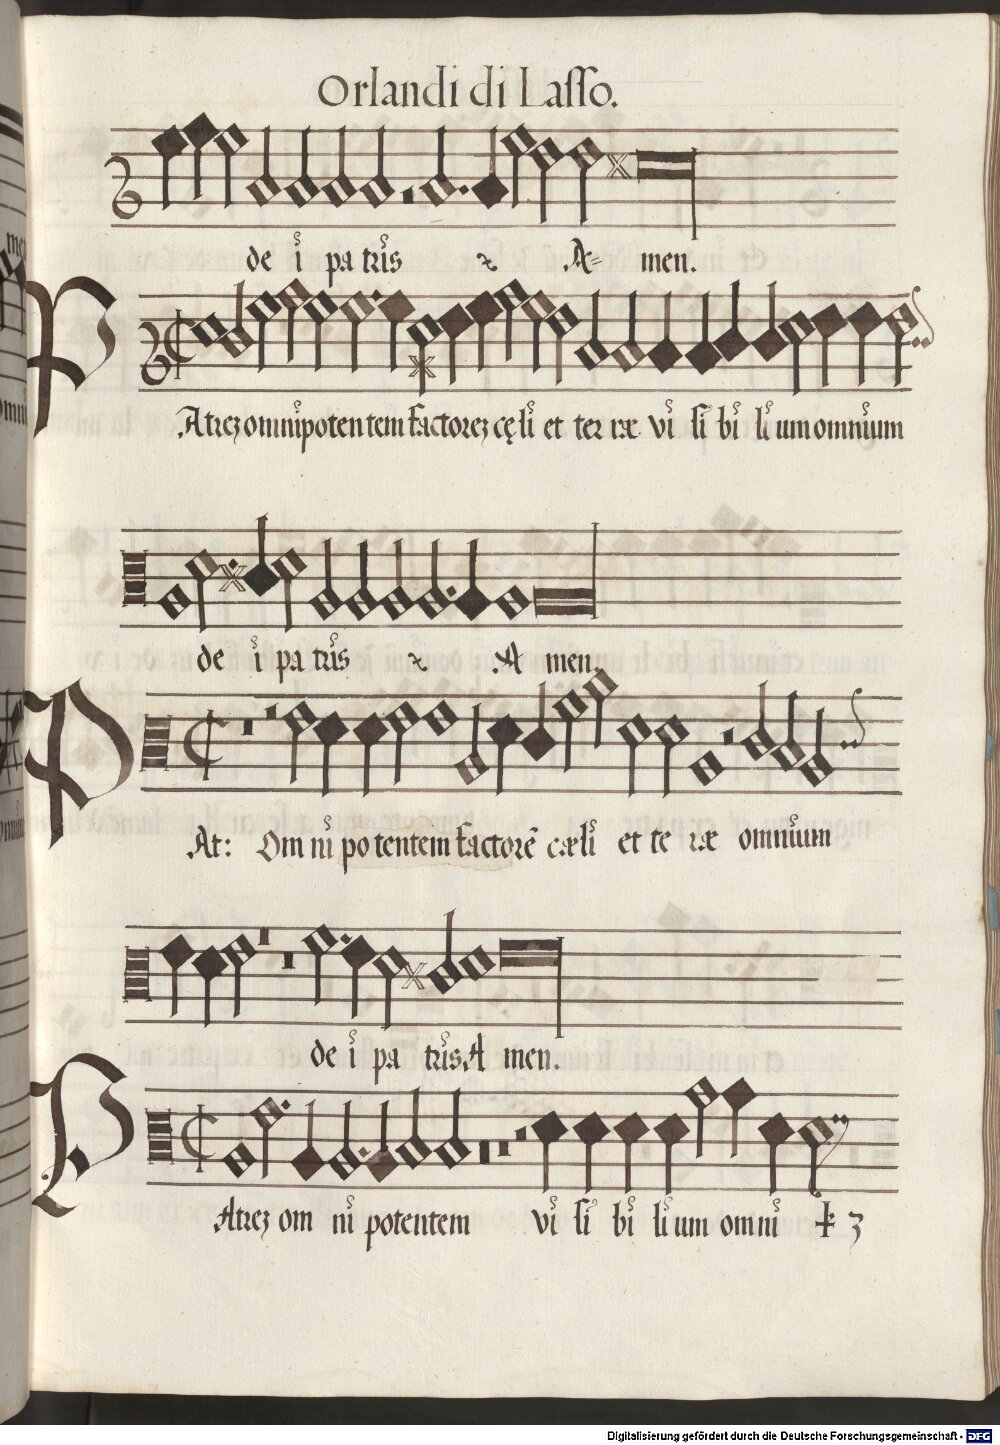 Orlandi di Lasso.
de i pa tris A= men.
Atrez omnipotentem factorez cęli et ter ræ vi si bi li um omnium
de i pa tris A men.
At: Om ni potentem factorē cæli et te ræ omnium
de i pa tris A men.
Atrez om ni potentem vi si bi li um omni
Digitalisierung gefördert durch die Deutsche Forschungsgemeinschaft - DFG